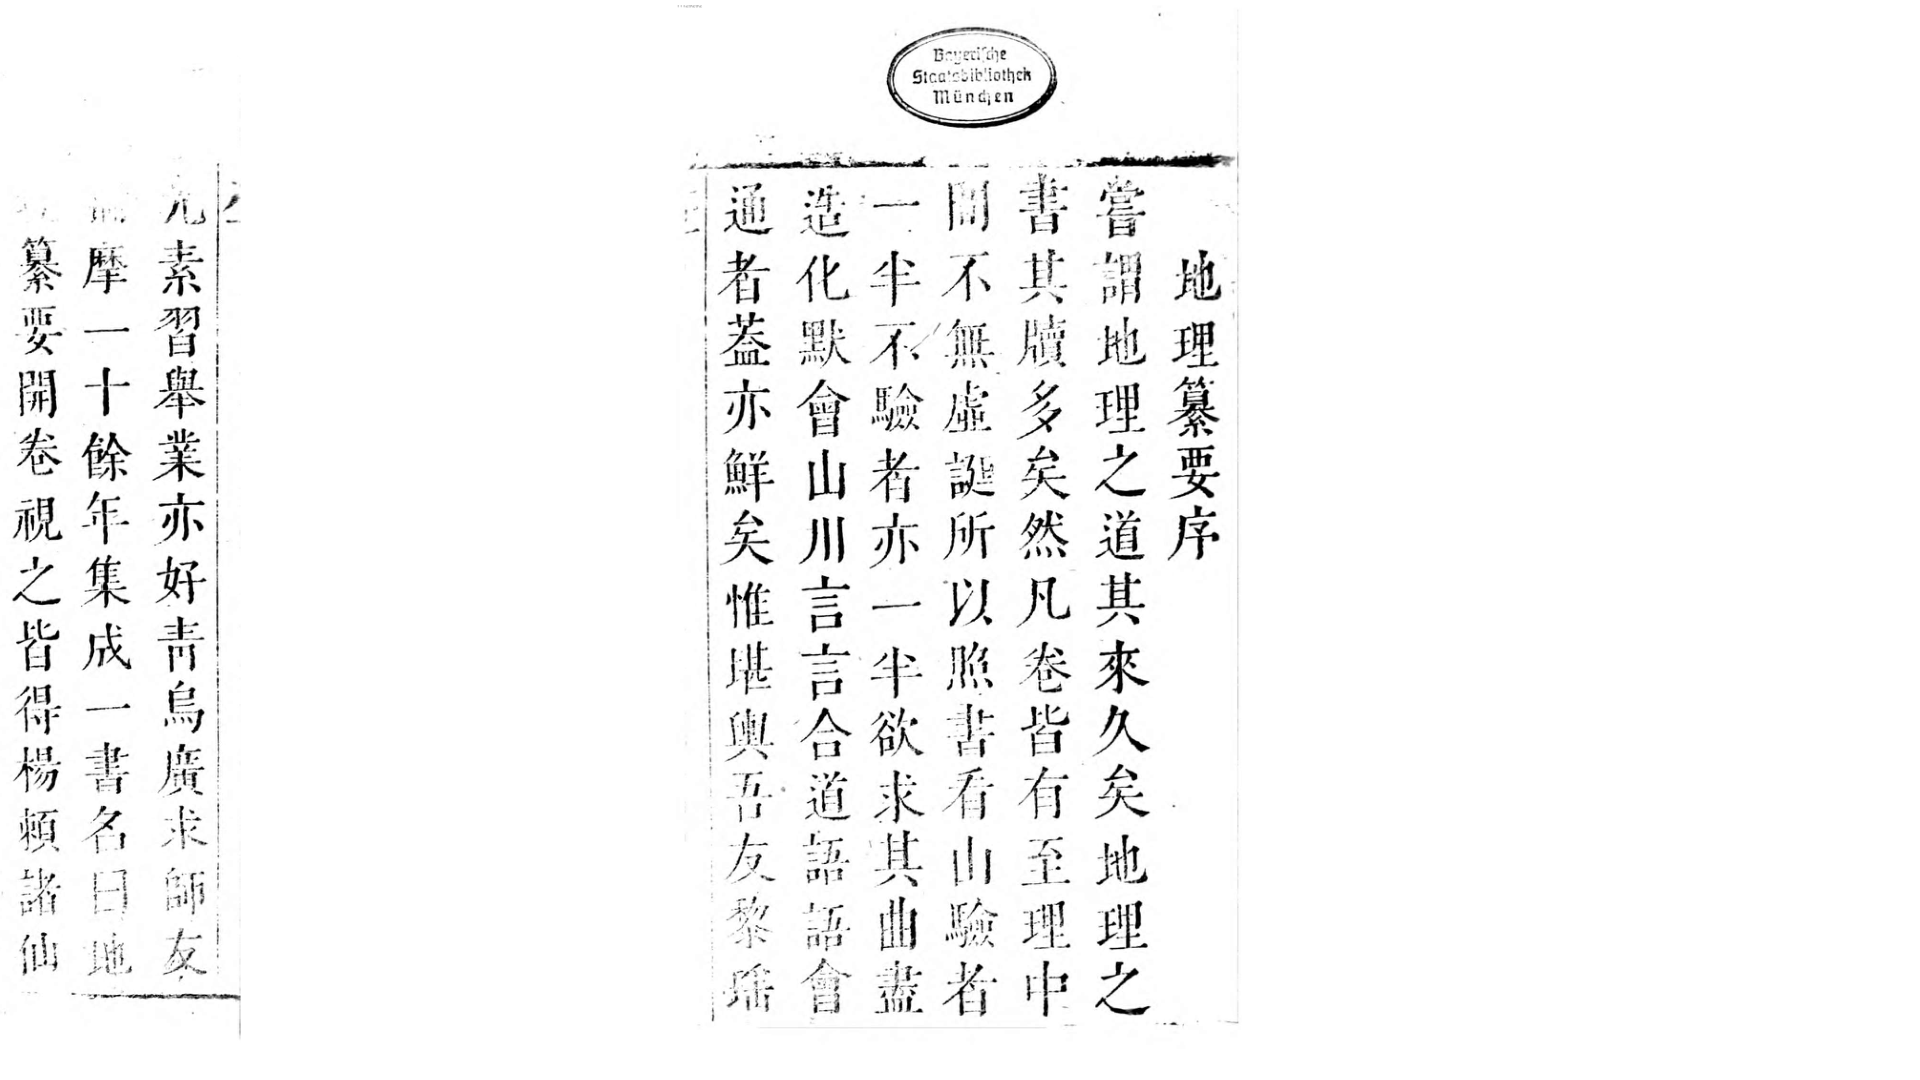 Bayerische
Staatsbibliothek
München
地理纂要序
嘗謂地理之道其來久矣地理之
書其牘多矣然凡卷皆有至理中
間不無虛誕所以照書看山驗者
一半不驗者亦一半欲求其曲盡
造化默會山川言言合道語語會
通者葢亦鮮矣惟堪輿吾友黎
元素習舉業亦好靑烏廣求師友
摩一十餘年集成一書名曰地
纂要開卷視之皆得楊頼諸仙